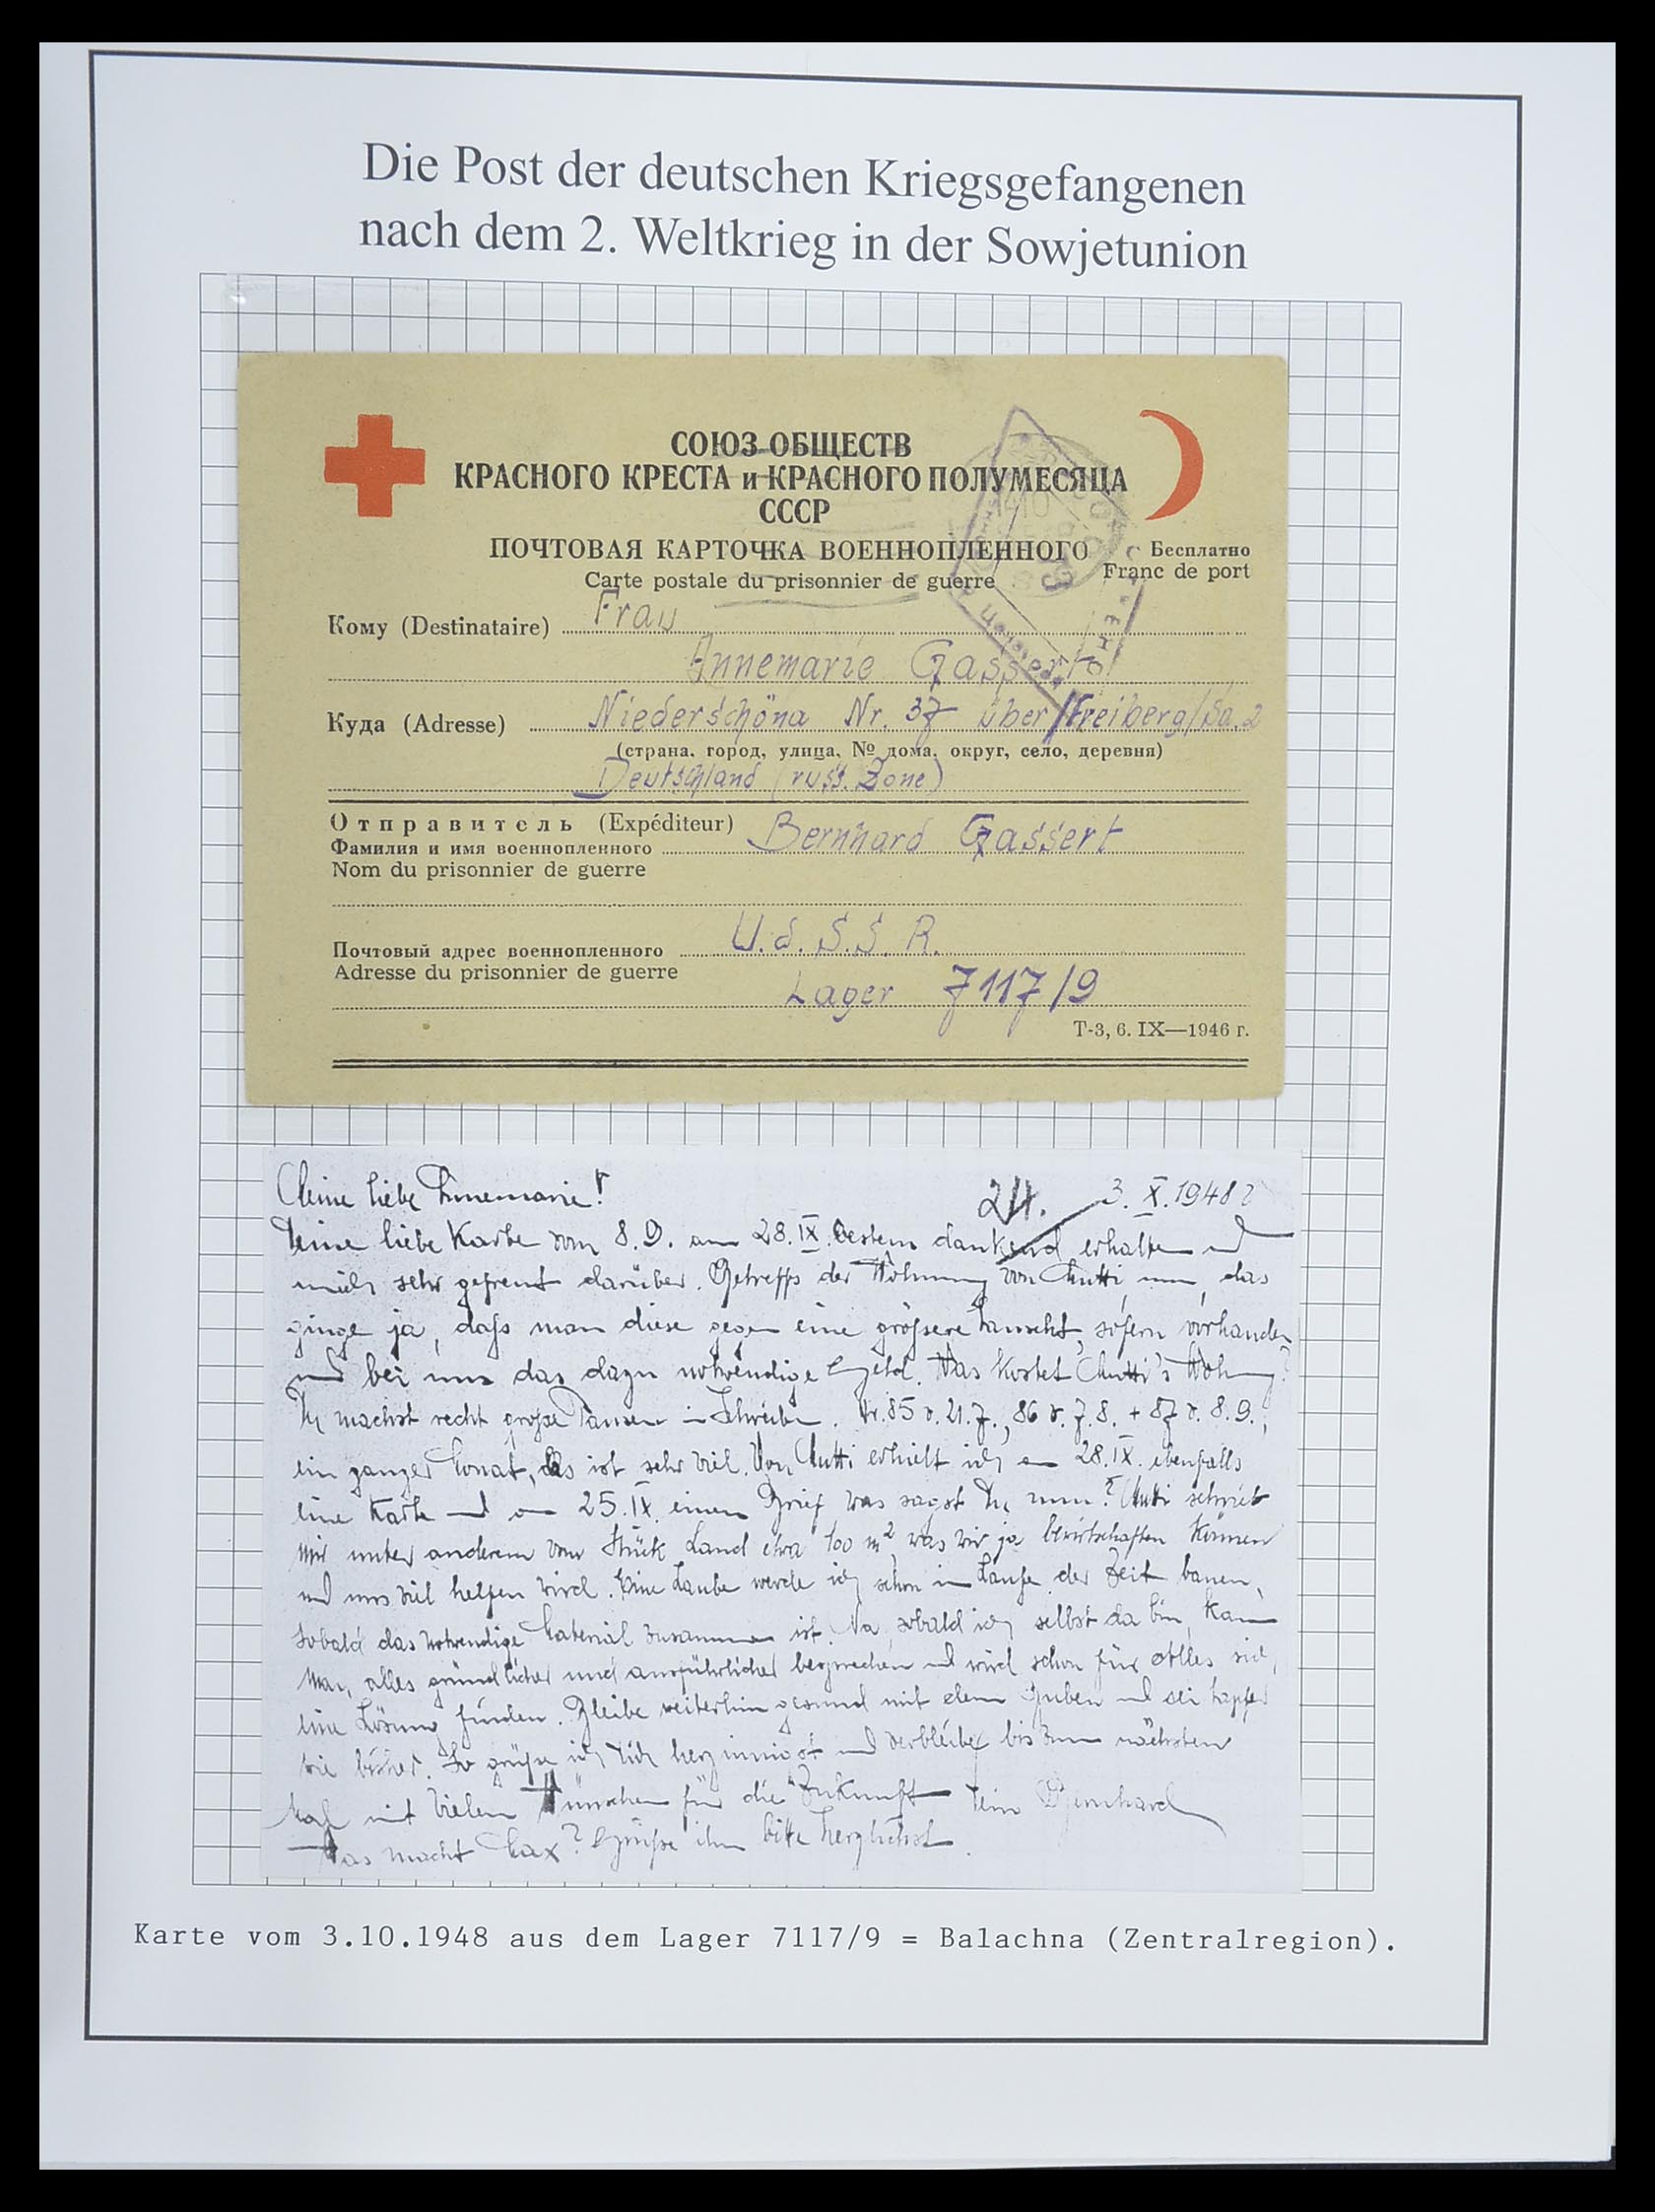 Die Post der deutschen Kriegsgefangenen
nach dem 2. Weltkrieg in der Sowjetunion
СОЮЗ ОБЩЕСТВ
КРАСНОГО КРЕСТА и КРАСНОГО ПОЛУМЕСЯЦА
СССР
ПОЧТОВАЯ КАРТОЧКА ВОЕННОПЛЕННОГО
Бесплатно
Carte postale du prisonnier de guerre
Franc de port
Кому (Destinataire) Frau
Annemarie Gassert
Куда (Adresse) Niederschöna Nr. 37 über/Freiberg/Sa. 2
(страна, город, улица, № дома, округ, село, деревня)
Deutschland (russ. Zone)
Отправитель (Expéditeur) Bernhard Gassert
Фамилия и имя военнопленного
Nom du prisonnier de guerre
U.d.S.S.R.
Почтовый адрес военнопленного
Adresse du prisonnier de guerre
Lager 7117/9
Т-3, 6. IX—1946 г.
Meine liebe Annemarie! 24. 3. X. 1948
Deine liebe Karte vom 8.9. am 28.IX. dankend erhalten und
mich sehr gefreut darüber. Betreffs der Wohnung von Mutti, nun, das
ginge ja, daß man diese gegen eine grössere tauscht, sofern vorhanden
und bei uns das dazu notwendige Geld. Was kostet Mutti's Wohnung?
Du machst recht große Pausen im Schreiben. Nr. 85 v. 21.7., 86 v. 7.8. + 87 v. 8.9.,
ein ganzer Monat, das ist sehr viel. Von Mutti erhielt ich am 28.IX. ebenfalls
eine Karte und am 25.IX. einen Brief was sagst Du nun? Mutti schrieb
mir unter anderem vom Stück Land etwa 100 m², was wir ja bewirtschaften können
und uns viel helfen wird. Eine Laube werde ich schon im Laufe der Zeit bauen,
sobald das notwendige Material zusammen ist. Na, sobald ich selbst da bin, kann
man, alles gründlicher und ausführlicher besprechen und wird schon für Alles sich
eine Lösung finden. Bleibe weiterhin gesund mit dem Buben und sei tapfer
wie bisher. So grüße ich Dich herzinnigst und verbleibe bis zum nächsten
Mal mit vielen Wünschen für die Zukunft Dein Bernhard
Was macht Max? Grüße ihn bitte herzlichst.
Karte vom 3.10.1948 aus dem Lager 7117/9 = Balachna (Zentralregion).